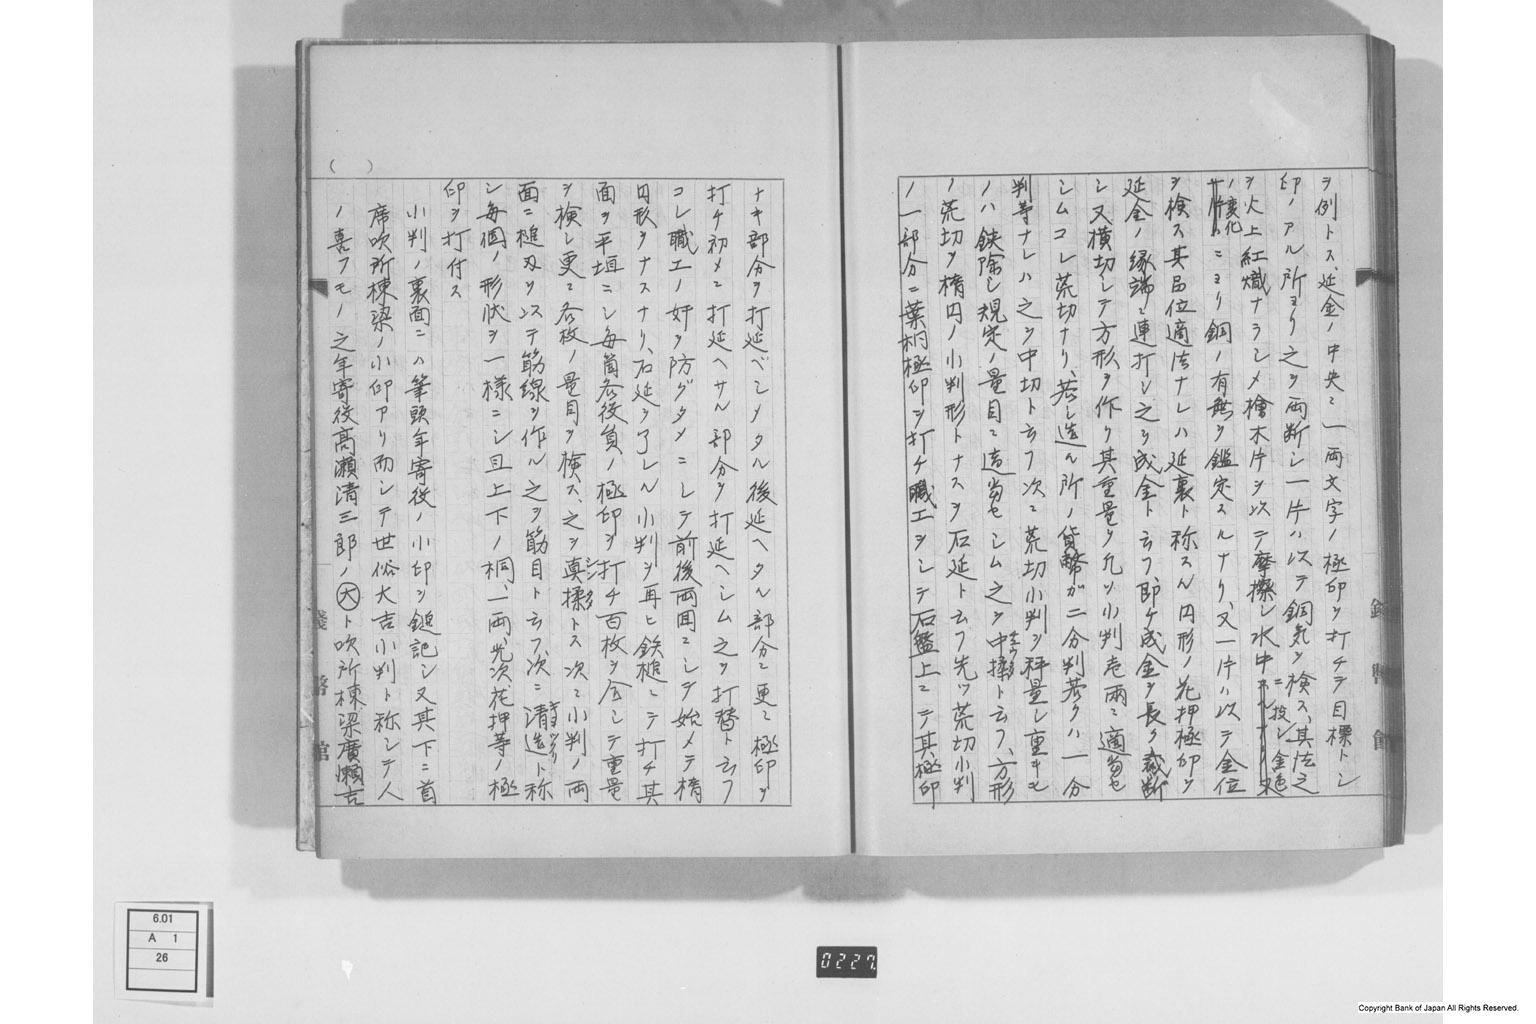 ヲ例トス、延金ノ中央ニ一両文字ノ極印ヲ打チテ目標トシ
印ノアル所ヨリ之ヲ両断シ一片ハ以テ銅気ヲ検ス、其法之
ヲ火上紅熾ナラシメ檜木片ヲ以テ摩擦シ水中ニ投シ金色
ノ変化ニヨリ銅ノ有無ヲ鑑定スルナリ、又一片ハ以テ金位
ヲ検ス其品位適法ナレハ延裏ト称スル円形ノ花押極印ヲ
延金ノ縁端ニ連打シ之ヲ成金ト云フ即チ成金ヲ長ク裁断
シ又横切シテ方形ヲ作リ其重量ヲ凡ソ小判壱両ニ適当セ
シムコレ荒切ナリ、若シ造ル所ノ貨幣ガ二分判若クハ一分
判等ナレハ之ヲ中切ト云フ次ニ荒切小判ヲ秤量シ重キモ
ノハ鋏除シ規定ノ量目ニ適当セシム之ヲ中揉ト云フ、方形
ノ荒切ヲ楕円ノ小判形トナスヲ石延ト云フ先ツ荒切小判
ノ一部分ニ葉桐極印ヲ打チ職工ヲシテ石盤上ニテ其極印
ナキ部分ヲ打延ベシメタル後延ヘタル部分ニ更ニ極印ヲ
打チ初メニ打延ヘサル部分ヲ打延ヘシム之ヲ打替ト云フ
コレ職工ノ奸ヲ防グタメニシテ前後両回ニシテ始メテ楕
円形ヲナスナリ、石延ヲ了レル小判ヲ再ヒ鉄槌ニテ打チ其
面ヲ平垣ニシ毎箇各役員ノ極印ヲ打チ百枚ヲ合シテ重量
ヲ検シ更ニ各枚ノ量目ヲ検ス、之ヲ真揉トス次ニ小判ノ両
面ニ槌刃ヲ以テ筋線ヲ作ル之ヲ筋目ト云フ、次ニ清造ト称
シ毎個ノ形状ヲ一様ニシ且上下ノ桐、一両、光次花押等ノ極
印ヲ打付ス
小判ノ裏面ニハ筆頭年寄役ノ小印ヲ鎚記シ又其下ニ首
席吹所棟梁ノ小印アリ而シテ世俗大吉小判ト称シテ人
ノ喜フモノ之年寄役高瀬清三郎ノ大ト吹所棟梁廣瀬吉
( )
6.01
A 1
26
0227
Copyright Bank of Japan All Rights Reserved.